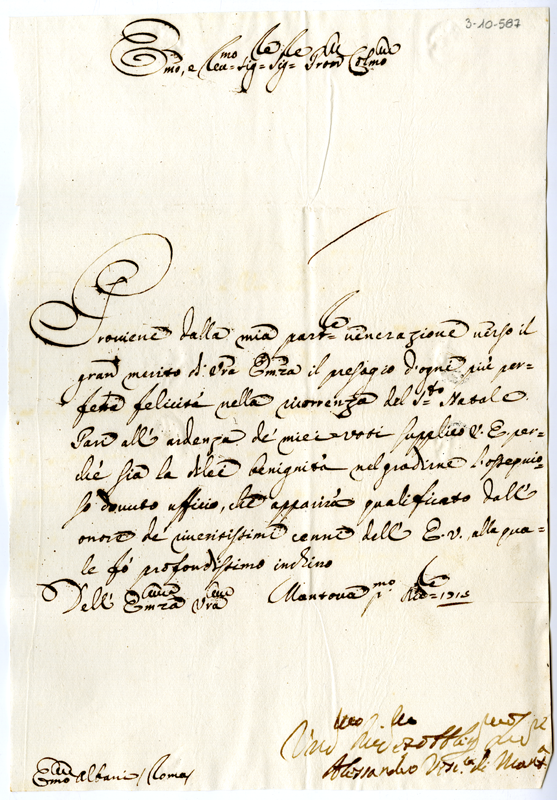 3-10-587
Emo, e Reu=mo Sig=re Sig=re Pron Colmo
Proviene dalla mia partre venerazione verso il
gran merito di Vra Emza il presagio d'ogni più per=
fetta felicità nella ricorrenza del S.to Natale.
Pari all' ardenza de' miei voti supplico V. E. per=
che sia la di lei benignità nel gradirne l'ossequio=
so dovuto ufficio, che apparirà qualificato dall'
onore de' riveritissimi cenni dell' E. V. alla qua=
le fò profondissimo inchino
Dell' Emza Vra Mantova p.mo Xbre
Alessandro di
Emo Albani / Roma /